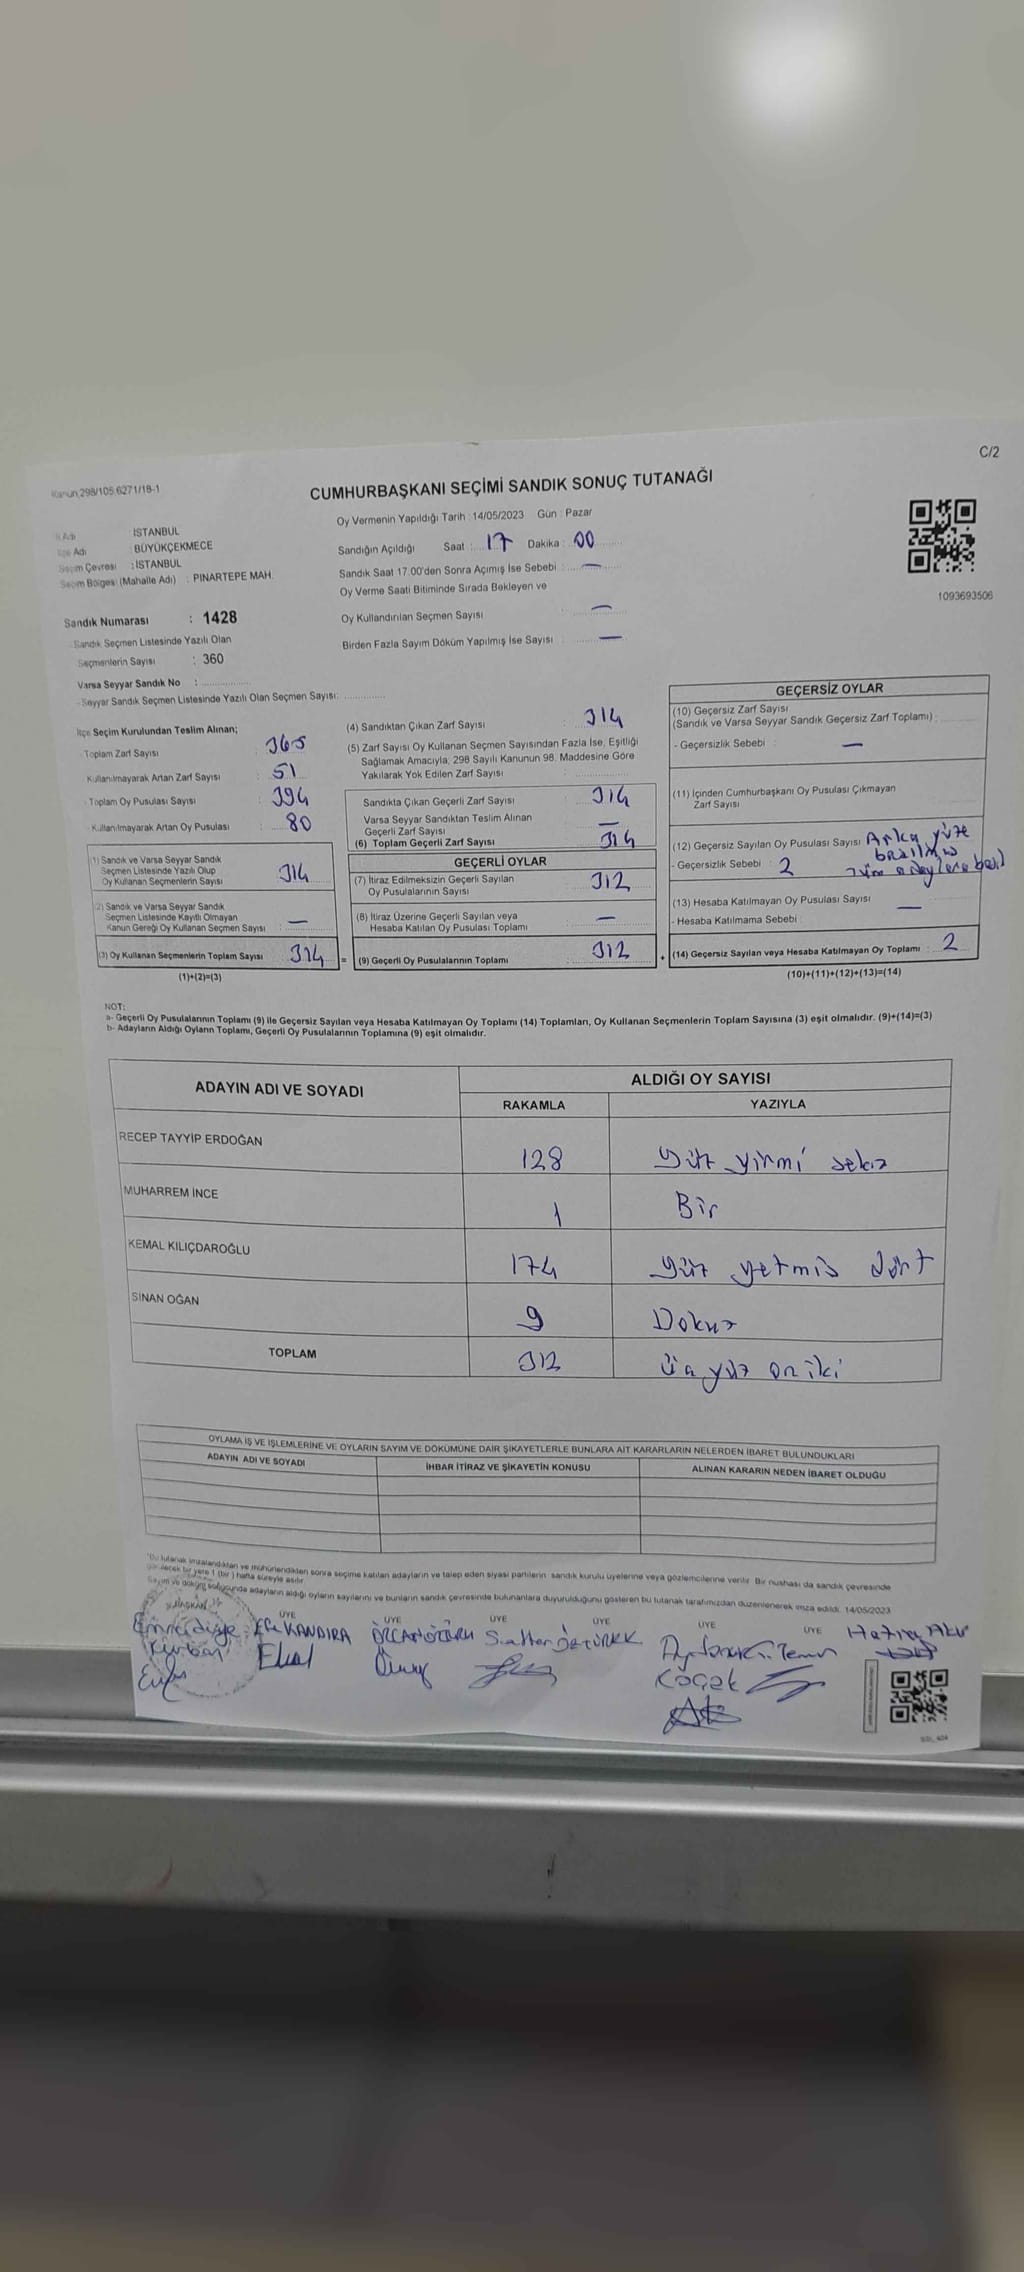 C/2
Kanun,298/105,6271/18-1
CUMHURBAŞKANI SEÇİMİ SANDIK SONUÇ TUTANAĞI
Oy Vermenin Yapıldığı Tarih : 14/05/2023 Gün : Pazar
İl Adı : İSTANBUL
İlçe Adı : BÜYÜKÇEKMECE
Seçim Çevresi : İSTANBUL
Seçim Bölgesi (Mahalle Adı) : PINARTEPE MAH.
Sandığın Açıldığı Saat : 17 Dakika : 00
Sandık Saat 17.00'den Sonra Açımış İse Sebebi : —
Oy Verme Saati Bitiminde Sırada Bekleyen ve
Oy Kullandırılan Seçmen Sayısı : —
Birden Fazla Sayım Döküm Yapılmış İse Sayısı : —
1093693506
Sandık Numarası : 1428
Sandık Seçmen Listesinde Yazılı Olan
Seçmenlerin Sayısı : 360
Varsa Seyyar Sandık No :
- Seyyar Sandık Seçmen Listesinde Yazılı Olan Seçmen Sayısı:
İlçe Seçim Kurulundan Teslim Alınan;
- Toplam Zarf Sayısı : 365
Kullanılmayarak Artan Zarf Sayısı : 51
- Toplam Oy Pusulası Sayısı : 394
- Kullanılmayarak Artan Oy Pusulası : 80
(1) Sandık ve Varsa Seyyar Sandık
Seçmen Listesinde Yazılı Olup
Oy Kullanan Seçmenlerin Sayısı : 314
(2) Sandık ve Varsa Seyyar Sandık
Seçmen Listesinde Kayıtlı Olmayan
Kanun Gereği Oy Kullanan Seçmen Sayısı : —
(3) Oy Kullanan Seçmenlerin Toplam Sayısı : 314
(1)+(2)=(3)
(4) Sandıktan Çıkan Zarf Sayısı : 314
(5) Zarf Sayısı Oy Kullanan Seçmen Sayısından Fazla İse, Eşitliği
Sağlamak Amacıyla, 298 Sayılı Kanunun 98. Maddesine Göre
Yakılarak Yok Edilen Zarf Sayısı :
Sandıkta Çıkan Geçerli Zarf Sayısı : 314
Varsa Seyyar Sandıktan Teslim Alınan
Geçerli Zarf Sayısı : —
(6) Toplam Geçerli Zarf Sayısı : 314
GEÇERLİ OYLAR
(7) İtiraz Edilmeksizin Geçerli Sayılan
Oy Pusulalarının Sayısı : 312
(8) İtiraz Üzerine Geçerli Sayılan veya
Hesaba Katılan Oy Pusulası Toplamı : —
= (9) Geçerli Oy Pusulalarının Toplamı : 312
GEÇERSİZ OYLAR
(10) Geçersiz Zarf Sayısı
(Sandık ve Varsa Seyyar Sandık Geçersiz Zarf Toplamı) :
- Geçersizlik Sebebi : —
(11) İçinden Cumhurbaşkanı Oy Pusulası Çıkmayan
Zarf Sayısı :
(12) Geçersiz Sayılan Oy Pusulası Sayısı : Arka yüze
- Geçersizlik Sebebi : 2
(13) Hesaba Katılmayan Oy Pusulası Sayısı : —
- Hesaba Katılmama Sebebi :
+ (14) Geçersiz Sayılan veya Hesaba Katılmayan Oy Toplamı : 2
(10)+(11)+(12)+(13)=(14)
NOT:
a- Geçerli Oy Pusulalarının Toplamı (9) ile Geçersiz Sayılan veya Hesaba Katılmayan Oy Toplamı (14) Toplamları, Oy Kullanan Seçmenlerin Toplam Sayısına (3) eşit olmalıdır. (9)+(14)=(3)
b- Adayların Aldığı Oyların Toplamı, Geçerli Oy Pusulalarının Toplamına (9) eşit olmalıdır.
ADAYIN ADI VE SOYADI ALDIĞI OY SAYISI
RAKAMLA YAZIYLA
RECEP TAYYİP ERDOĞAN 128 yüz yirmi sekiz
MUHARREM İNCE 1 Bir
KEMAL KILIÇDAROĞLU 174 yüz yetmiş dört
SİNAN OĞAN 9 Dokuz
TOPLAM 312 üç yüz on iki
OYLAMA İŞ VE İŞLEMLERİNE VE OYLARIN SAYIM VE DÖKÜMÜNE DAİR ŞİKAYETLERLE BUNLARA AİT KARARLARIN NELERDEN İBARET BULUNDUKLARI
ADAYIN ADI VE SOYADI İHBAR İTİRAZ VE ŞİKAYETİN KONUSU ALINAN KARARIN NEDEN İBARET OLDUĞU
*Bu tutanak imzalandıktan ve mühürlendikten sonra seçime katılan adayların ve talep eden siyasi partilerin sandık kurulu üyelerine veya gözlemcilerine verilir. Bir nushası da sandık çevresinde
görülecek bir yere 1 (bir) hafta süreyle asılır.
Sayım ve döküm sonucunda adayların aldığı oyların sayılarını ve bunların sandık çevresinde bulunanlara duyurulduğunu gösteren bu tutanak tarafımızdan düzenlenerek imza edildi. 14/05/2023
BAŞKAN ÜYE ÜYE ÜYE ÜYE ÜYE ÜYE
KANDIRA ÖZCAN ÖZTÜRK ÖZTÜRK Hatice
Koçak